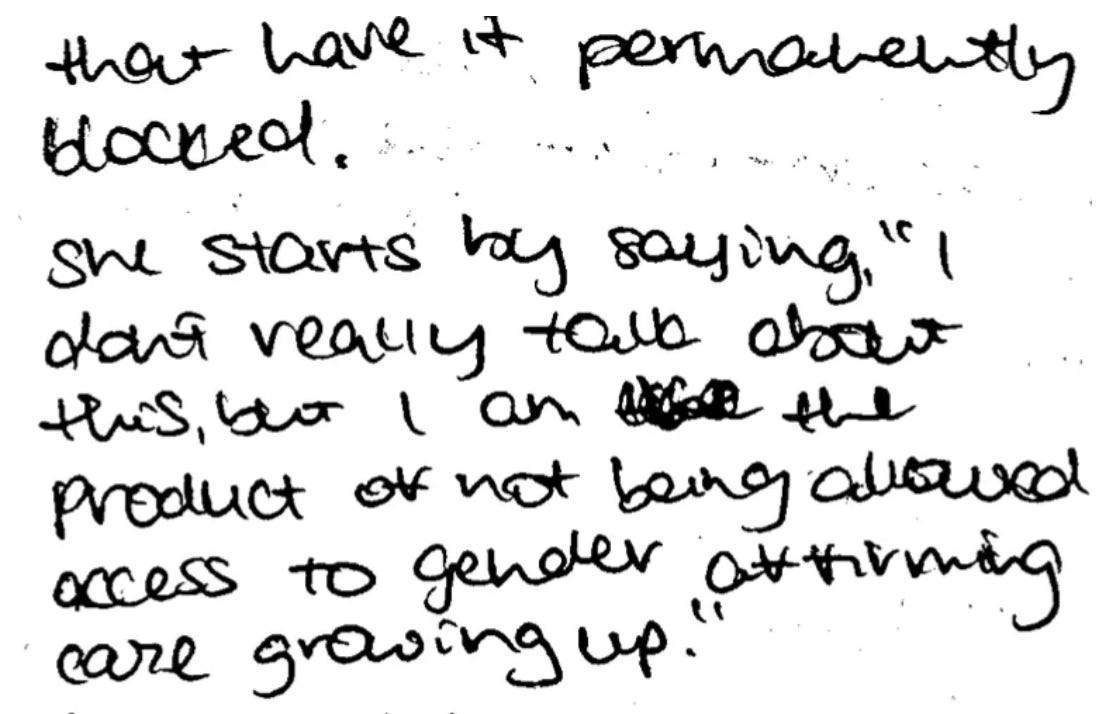 that have it permanently
blocked.
She starts by saying, "I
don't really talk about
this, but I am the
product of not being allowed
access to gender affirming
care growing up."